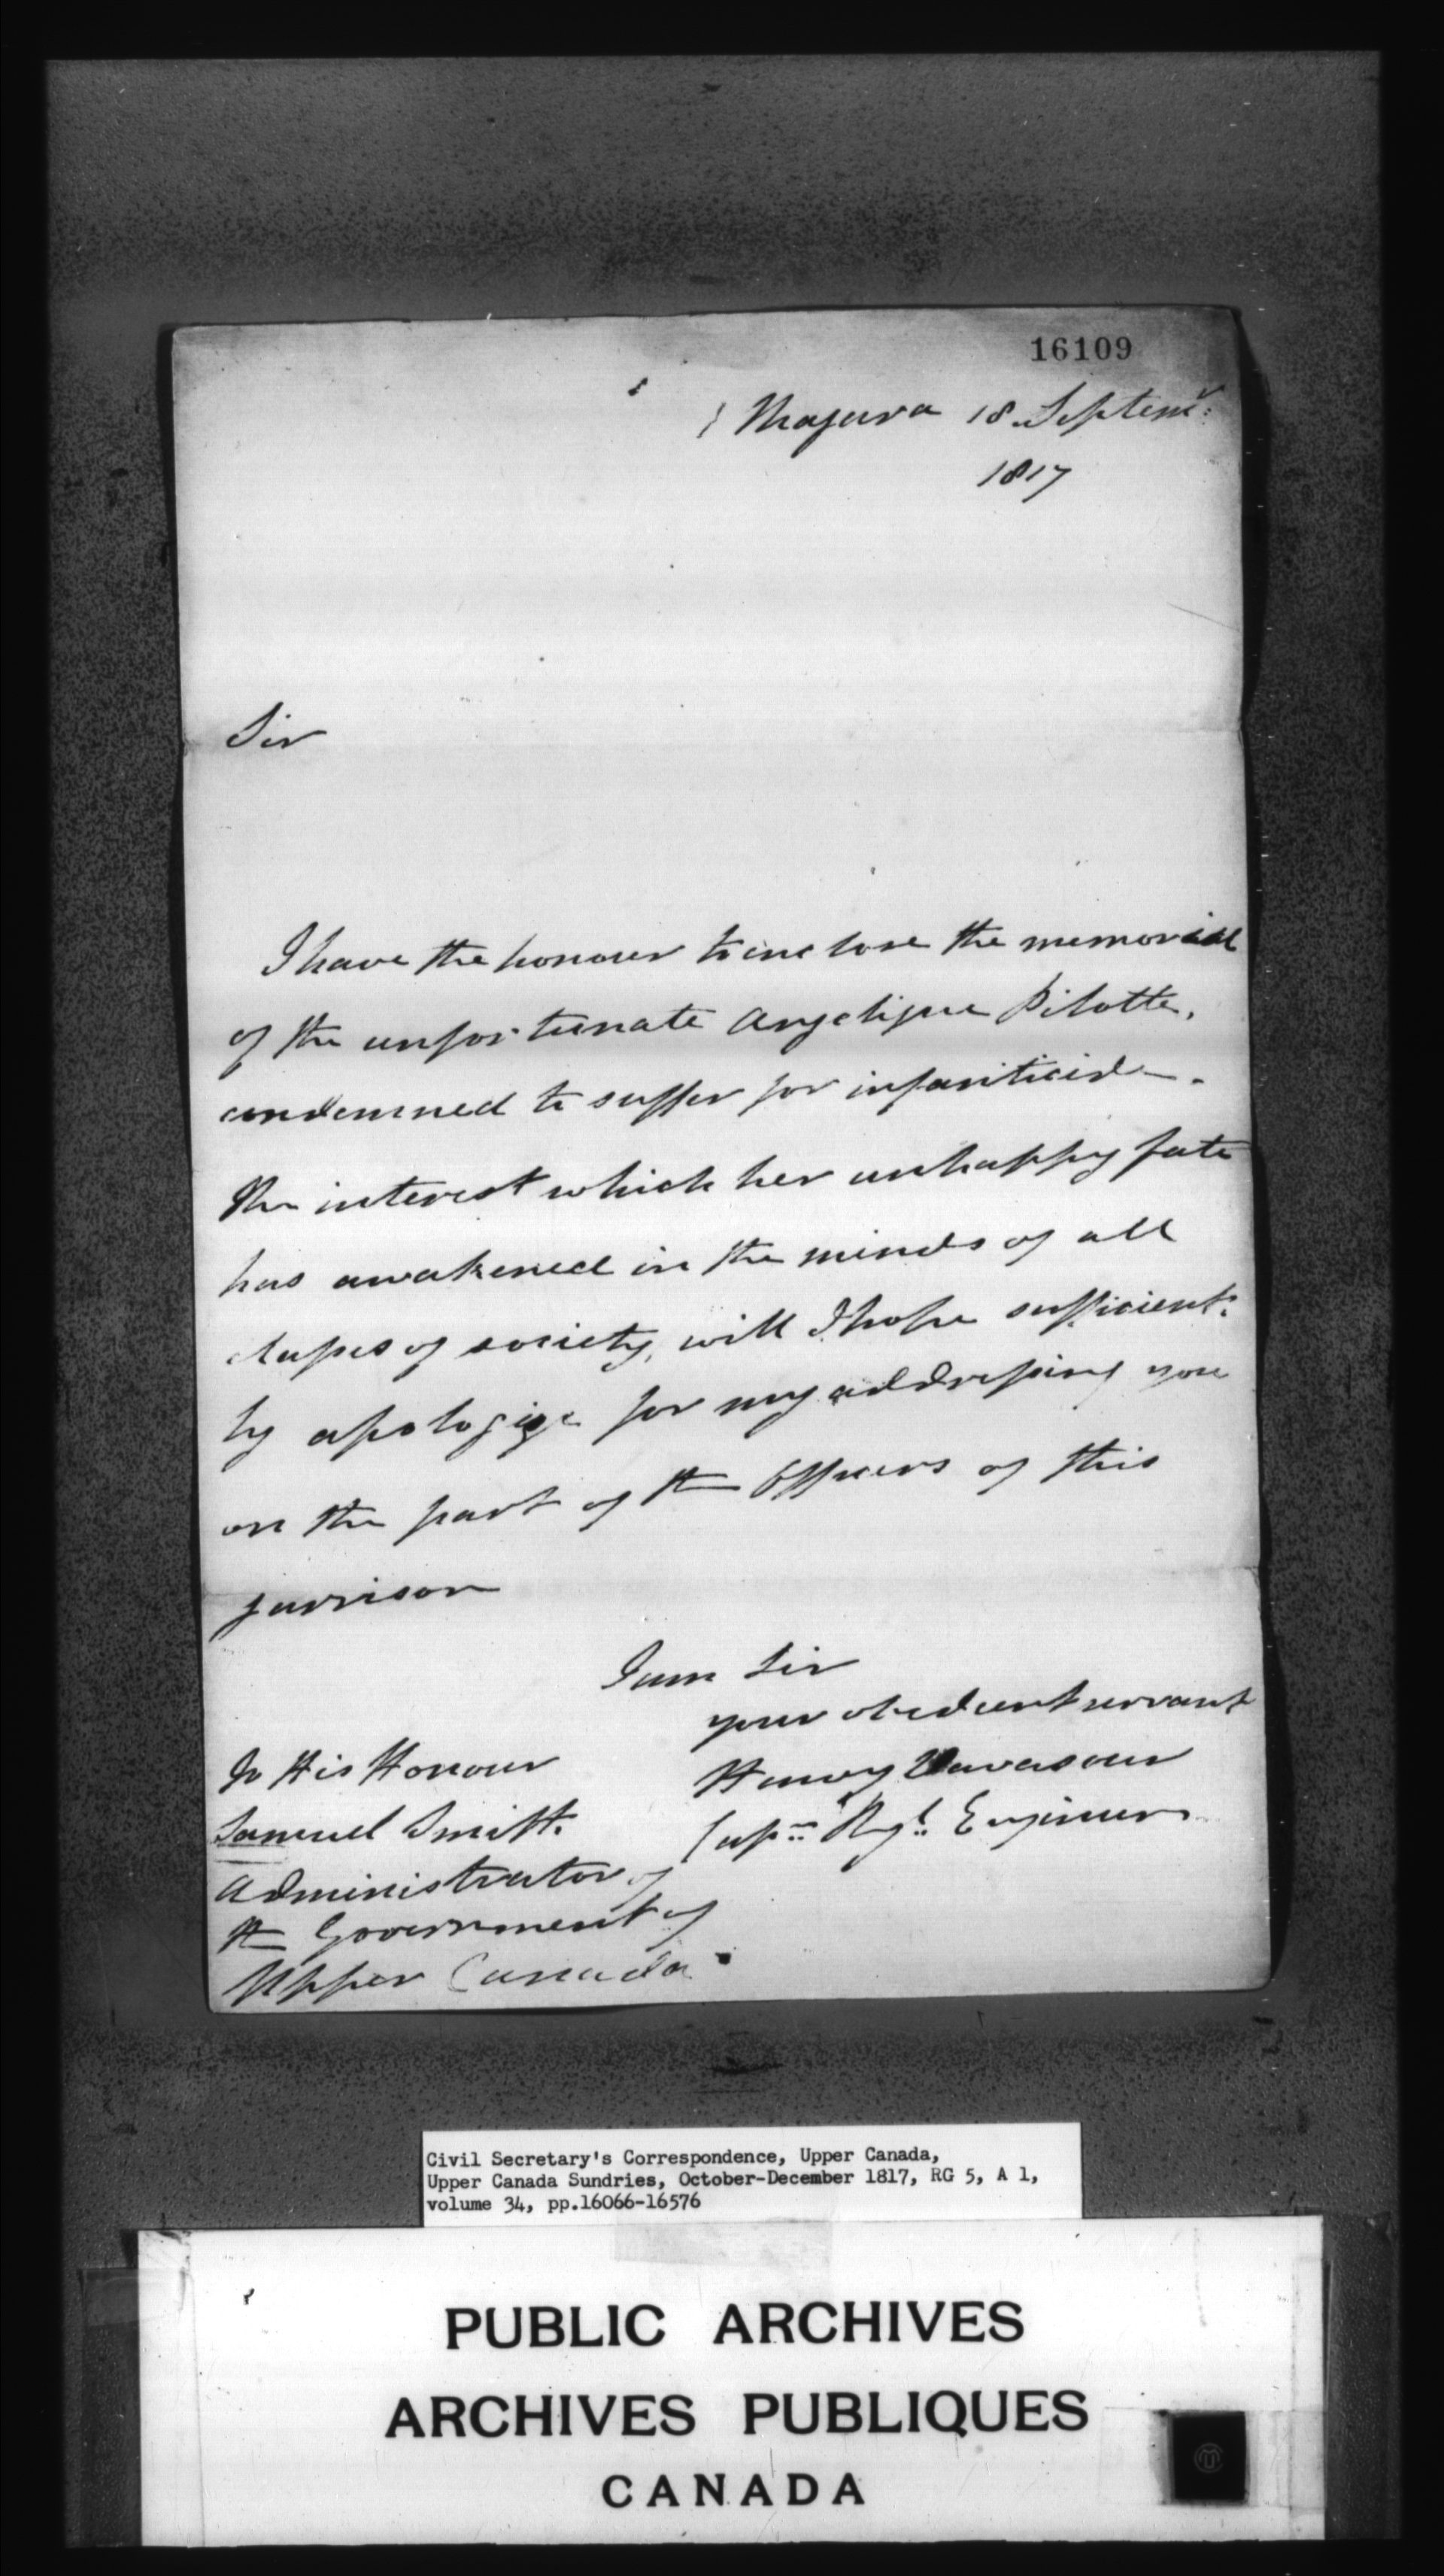 16109
Niagara 18 Septemr:
1817
Sir
I have the honour to inclose the memorial
of the unfortunate Angelique Pilotte,
condemned to suffer for infanticide.
The interest which her unhappy fate
has awakened in the minds of all
classes of society, will I hope sufficient:
ly apologize for my addressing you
on the part of the Officers of this
garrison
I am Sir
your obedient servant
Henry Vavasour
Capn Ryl. Engineers
To His Honour
Samuel Smith
Administrator of
the Government of
Upper Canada
Civil Secretary's Correspondence, Upper Canada,
Upper Canada Sundries, October-December 1817, RG 5, A 1,
volume 34, pp.16066-16576
PUBLIC ARCHIVES
ARCHIVES PUBLIQUES
CANADA